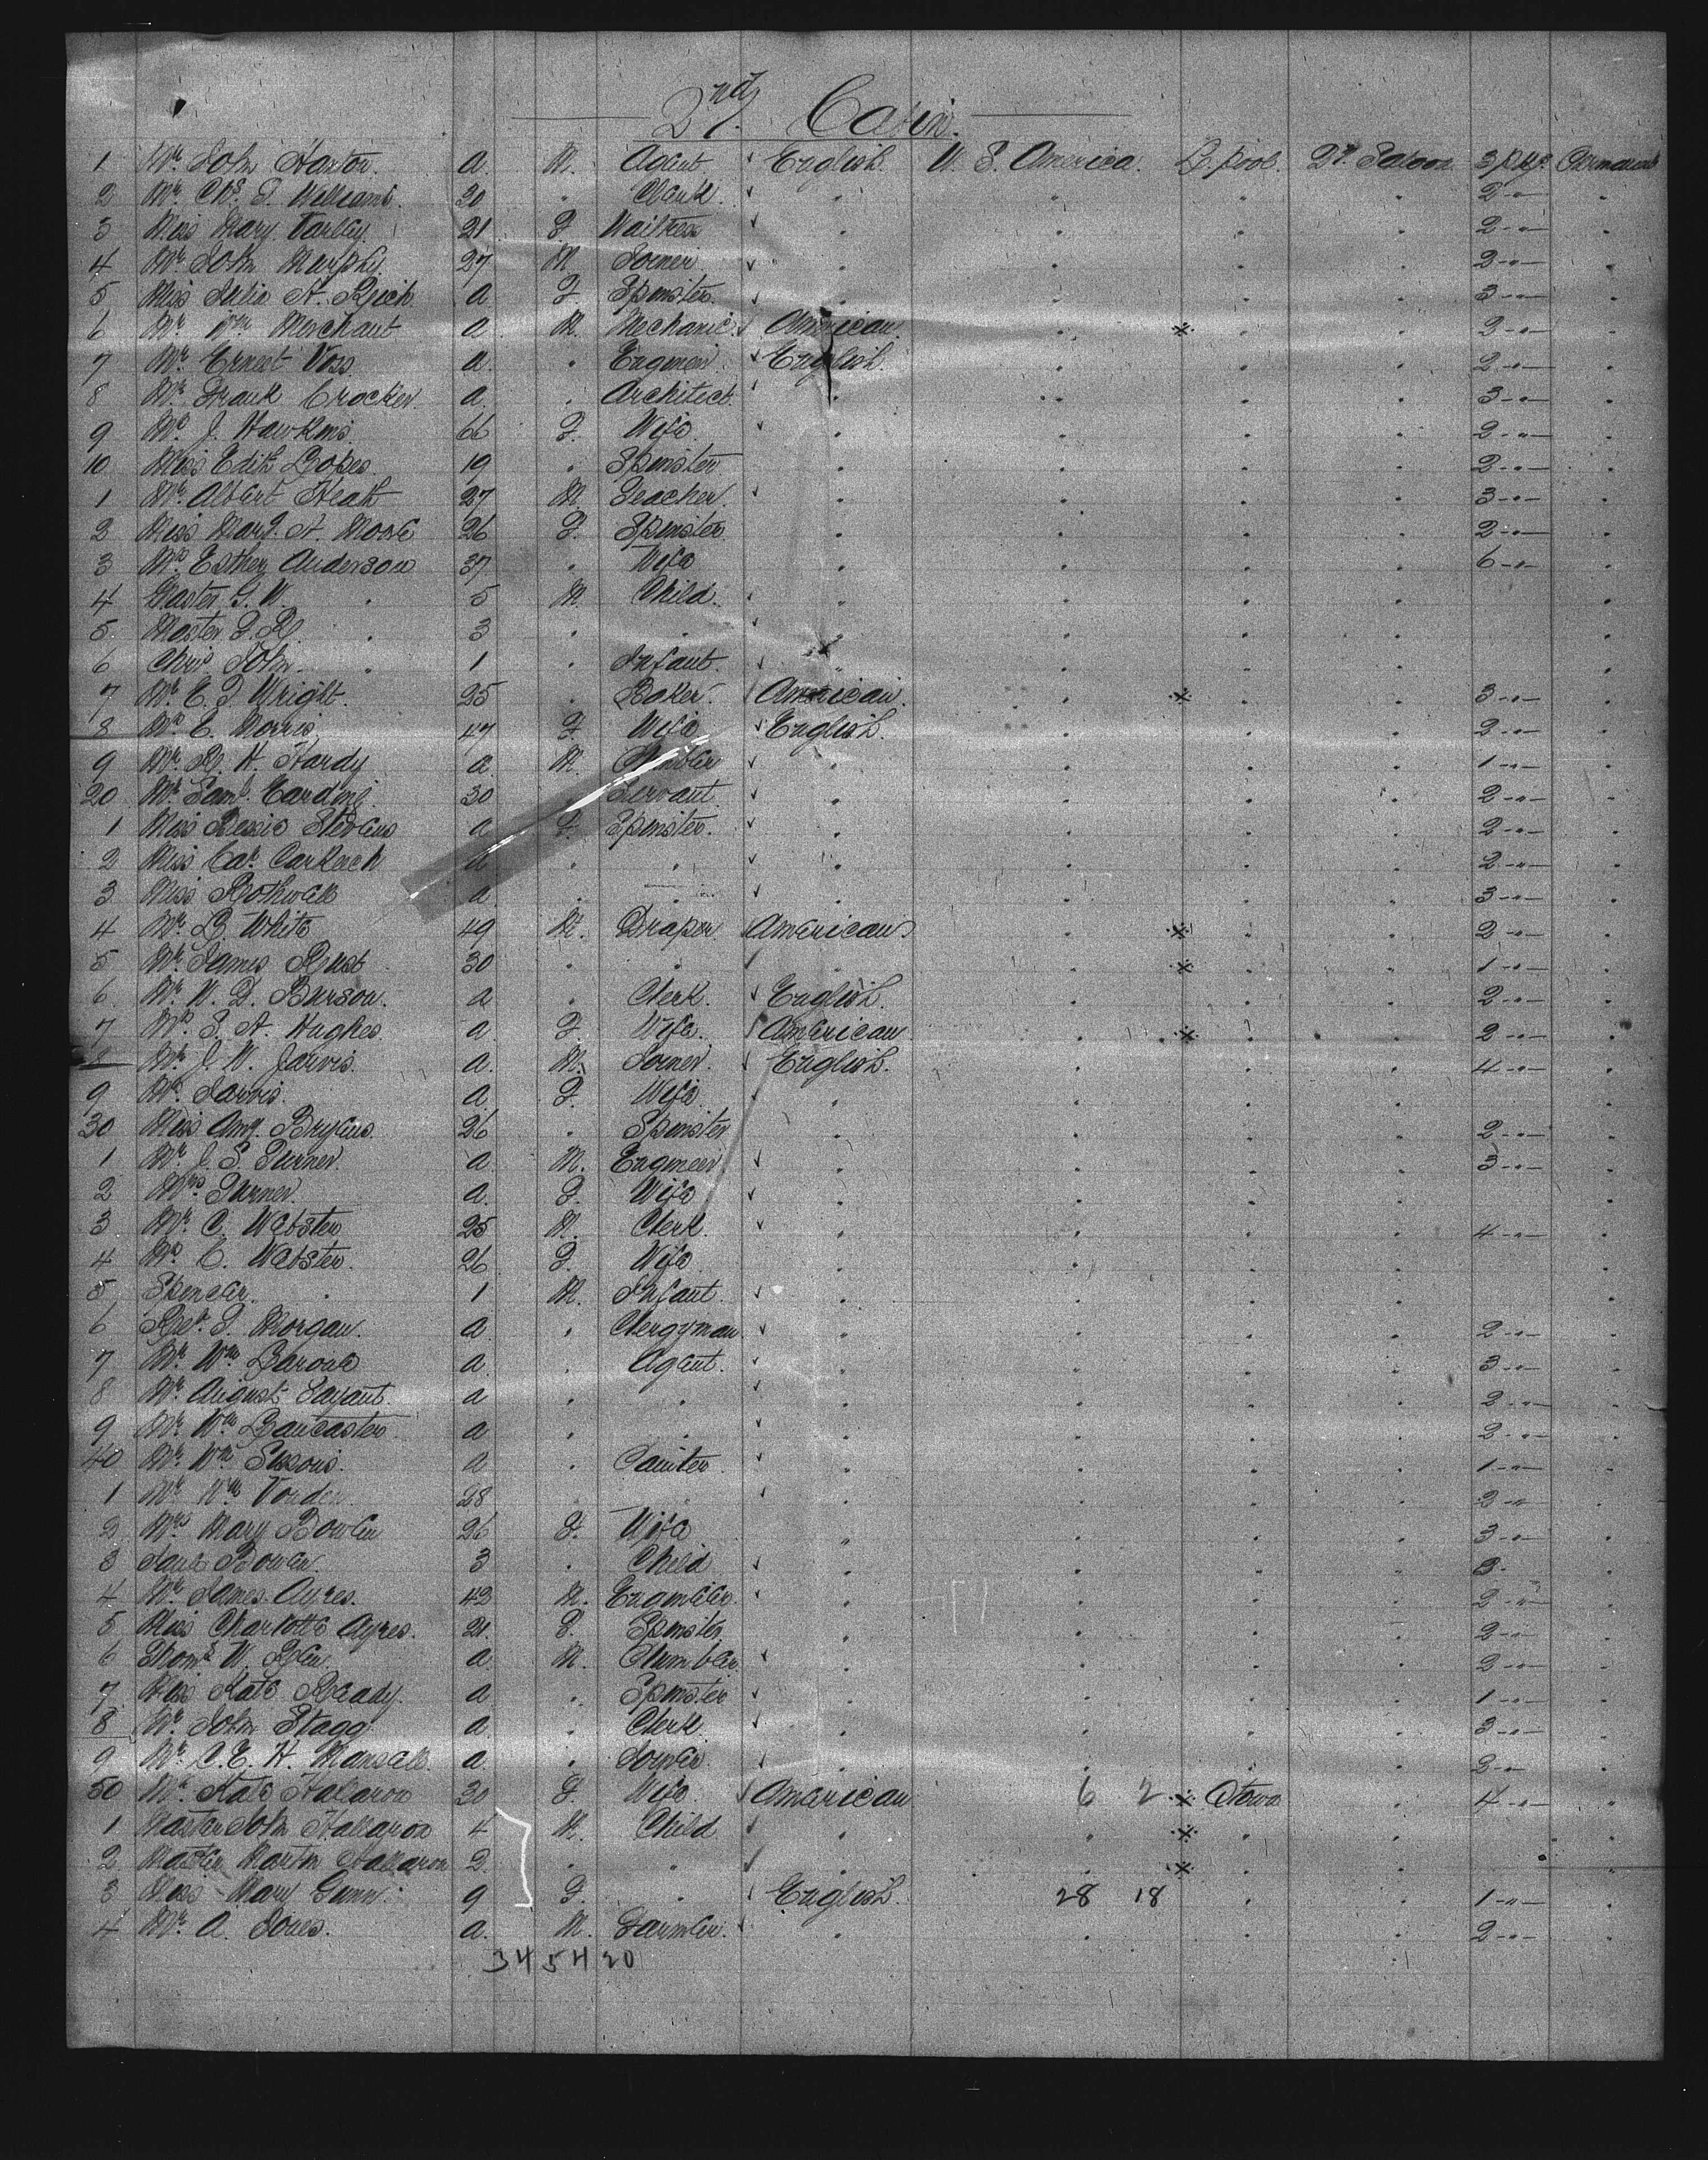 2nd Cabin.
1 Mr John Harton. a. M. Agent English. U. S. America. L'pool. 2d Saloon 3 pkgs. Permanent
2 Mr Chs. T. Williams. 20 " Clerk. " " " " 2-"- "
3 Miss Mary Varley. 21 F. Waitress " " " " 2-"- "
4 Mr John Murphy. 27 M Joiner. " " " " 2-"- "
5 Miss Julia A. a F. Spinster. " " " " 3-"- "
6 Mr Wm Merchant a. M. Mechanic. American. " * " " 2-"- "
7 Mr Ernest Voss a. " Engineer. English. " " " 2-"- "
8 Mr Frank Crocker. a. " Architect. " " " " 3-"- "
9 Mrs J. Hawkins. 66 F. Wife. " " " " 2-"- "
10 Miss Edith Lopes. 19 " Spinster " " " " 2-"- "
1 Mr Albert Heath 27 M. Teacher. " " " " 3-"- "
2 Miss Mary. A. Moore 26 F. Spinster " " " " 2-"- "
3 Mrs Esther Anderson 37 " Wife " " " " 6-"- "
4 Master G. W. " 5 M. Child. " " " " "
5 Master " 3 " " " " " " "
6 Chris John. " 1 " Infant. " " " " "
7 Mr E. T. Wright. 25 " Baker. American. " * " " 3-"- "
8 Mrs E. Morris. 47 F. Wife English. " " " 2-"- "
9 Mr R. H. Hardy a. M. " " " " 1-"- "
20 Mr Saml. Carding. 30 Servant. " " " " 2-"- "
1 Miss Bessie Stevens a F. Spinster. " " " " 2-"- "
2 Miss Cath. Carkeech a " " " " " " 2-"- "
3 Miss Rothwell a. " " " " " " 3-"- "
4 Mr B. White 49 M. Draper. American " * " " 2-"- "
5 Mr James Rust 30 " " " " * " " 1-"- "
6 Mr W. D. Burson. a " Clerk. English. " " " 2-"- "
7 Mrs S. A. Hughes a. F. Wife. American " * " " 2-"- "
8 Mr J. W. Jarvis. a. M. Joiner. English. " " " 4-"- "
9 Mrs Jarvis. a F. Wife. " " " " "
30 Miss Amy. 26 " Spinster " " " " 2-"- "
1 Mr J. S. Turner. a. M. Engineer " " " " 3-"- "
2 Mrs Turner. a. F. Wife " " " " "
3 Mr C. Webster 25 M. Clerk. " " " " 4-"- "
4 Mrs C. Webster. 26 F. Wife " " " " "
5 Spencer. " 1 M. Infant. " " " " "
6 Revd. T. Morgan. a. " Clergyman. " " " " 2-"- "
7 Mr Wm a " Agent. " " " " 3-"- "
8 Mr August a " " " " " " 2-"- "
9 Mr Wm Lancaster. a " " " " " " 2-"- "
40 Mr Wm Sissons. a " Painter. " " " " 1-"- "
1 Mr Wm 28 " " " " " 2-"- "
2 Mrs Mary Bowler 26 F. Wife " " " " 3-"- "
3 Bowler. 3 " Child " " " " 3. "
4 Mr James Ayres. 43 M. Engineer. " " " " 2-"- "
5 Miss Charlotte Ayres. 21. F. Spinster " " " " 2-"- "
6 Thoms. W. a. M. Plumber. " " " " 2-"- "
7 Miss Kate Ready. a " Spinster " " " " 1-"- "
8 Mr John Stagg. a " Clerk. " " " " 3-"- "
9 Mr C. E. H. Mansell. a " Joiner. " " " " 3-"- "
50 Mrs Kate Halloron 30 F. Wife. American 6 2 * " 4-"- "
1 Master John Halloron 4 M. Child " " * " " "
2 Master Martin Halloron 2 " " " * " " "
3 Miss Mary Gunn. 9 F. " English. 28 18 " " 1-"- "
4 Mr A. Jones. a. M. Farmer. " " " " 2-"- "
34 54 20